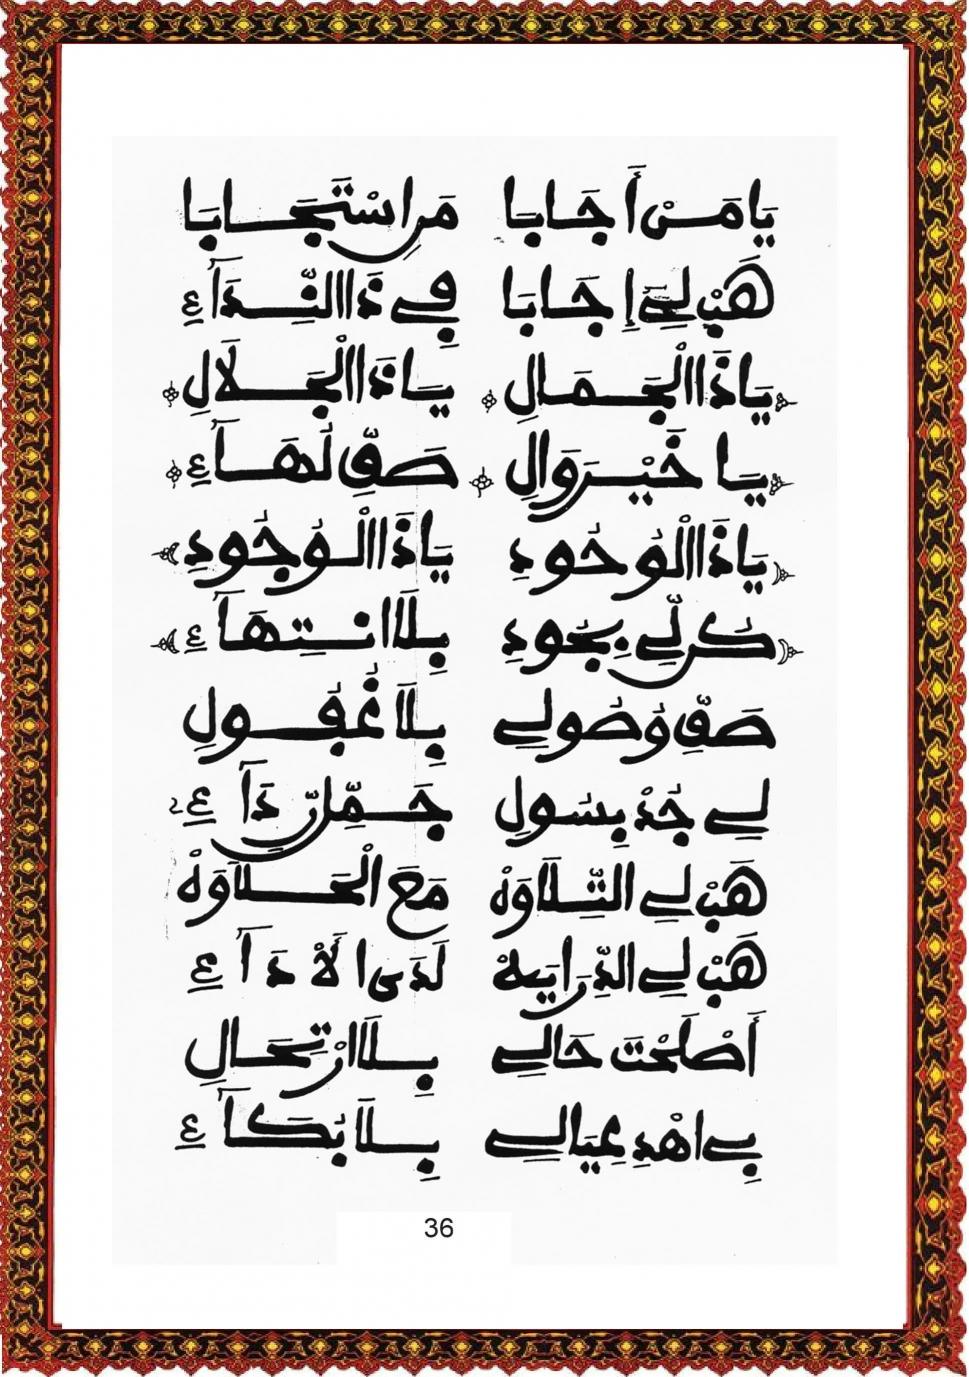 يَا مَنْ أَجَابَا مَنِ اسْتَجَابَا
هَبْ لِي إِجَابَا فِي ذَا النِّدَآءِ
يَا ذَا الْجَمَالِ يَا ذَا الْجَلَالِ
يَا خَيْرَ وَالِ صَفِّ لُهَآءِ
يَا ذَا الْوُجُودِ يَا ذَا الْوُجُودِ
كُن لِّي بِجُودِ بِلَا انْتِهَآءِ
صَفِّ وُصُولِي بِلَا غُفُولِ
لِي جُدْ بِسُولِ جَمِّل رِّدَآءِ
هَبْ لِي التِّلَاوَهْ مَعَ الْحَلَاوَهْ
هَبْ لِي الدِّرَايَهْ لَدَى الْأَدَآءِ
أَصْلَحْتَ حَالِي بِلَا ارْتِحَالِ
بِي اهْدِ عِيَالِي بِلَا بُكَآءِ
36